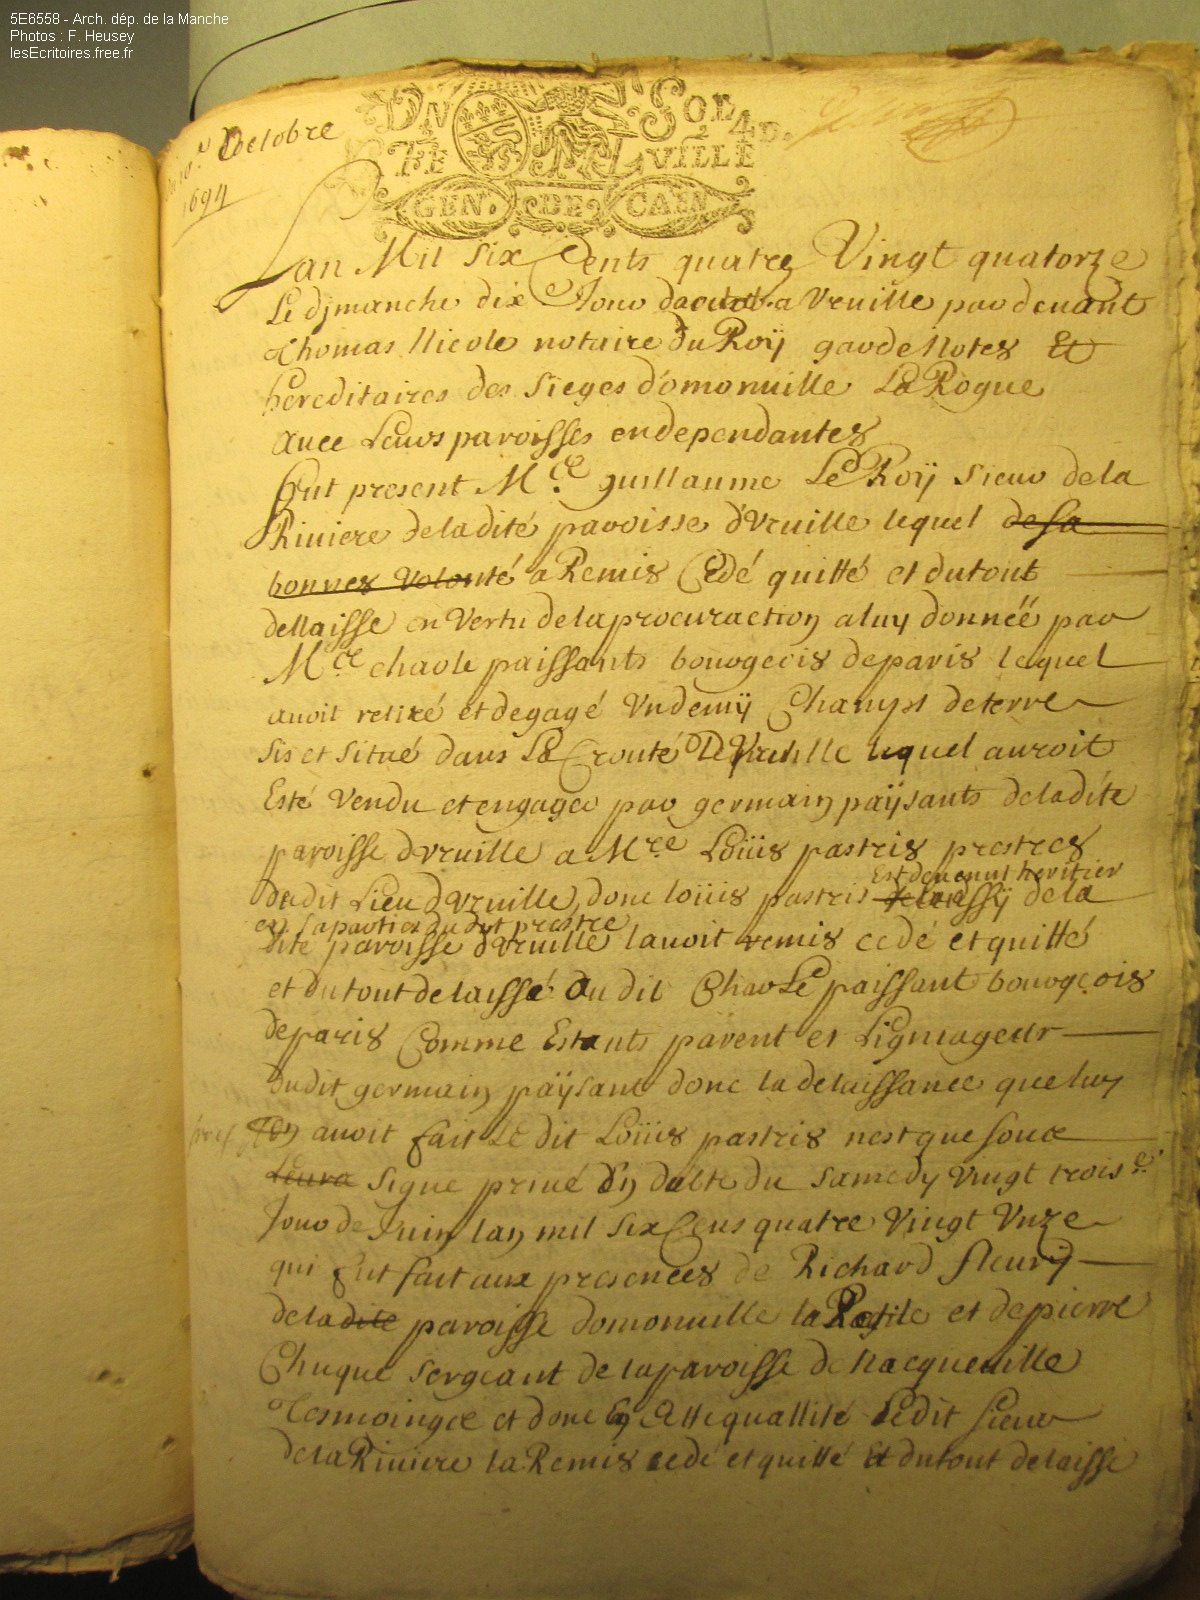 5E8558 - Arch. dép. de la Manche
Photos : F. Heusey
lesEcritoires.free.fr
Du 10.e Octobre
1694
DN SOL 4D.
VILLE
GEN. DE CAEN
Lan Mil six Cents quatre Vingt quatorze
Le djmanche dixe Jour doctobr a Vruille par deuant
Thomas Nicole notaire du Roÿ garde Notes Et
hereditaires des sieges d'omonuille La Rogue
auec Leurs paroisses en dependantes
fut present M.re guillaume Le Roÿ sieur de la
Riuiere de la dité paroisse d'Vruille lequel de sa
bonnes volonté a Remis Cedé quitté et du tout
dellaisse en Vertu de la procuraction a luy donnéé par
M.re charle paissants bourgeois de paris lequel
auoit retiré et degagé Vn demÿ Champs de terre
sis et situé dans La Crouté De Vruille lequel auroit
Esté Vendu et engagee par germain païsants de la dite
paroisse d vruille a M.re Loüis pastris prestres
du dit Lieu d Vruille, donc loüis pastris de la
Est deuenut heritier
en sa partie du dyt prestre
dite paroisse d Vruille lauoit remis cedé et quitté
et du tout delaissé au dit Charle paissant bourgeois
de paris Comme Estants parent et Ligniageur
du dit germain païsant donc la delaissance que luy
en auoit fait Le dit Loüis pastris nest que souce
Leura signe priué en datte du samedy vingt trois.e
Jour de Juin lan mil six Cens quatre Vingt Vnze
qui fut fait aux presences de Richard fleurÿ
de la dite paroisse domonuille la et de pierre
Chuque sergeant de la paroisse de Nacqueuille
Tesmoingce et donc en Cette quallité Ledit sieur
de la Riuiere la Remis cedé et quitté Et du tout delaissé